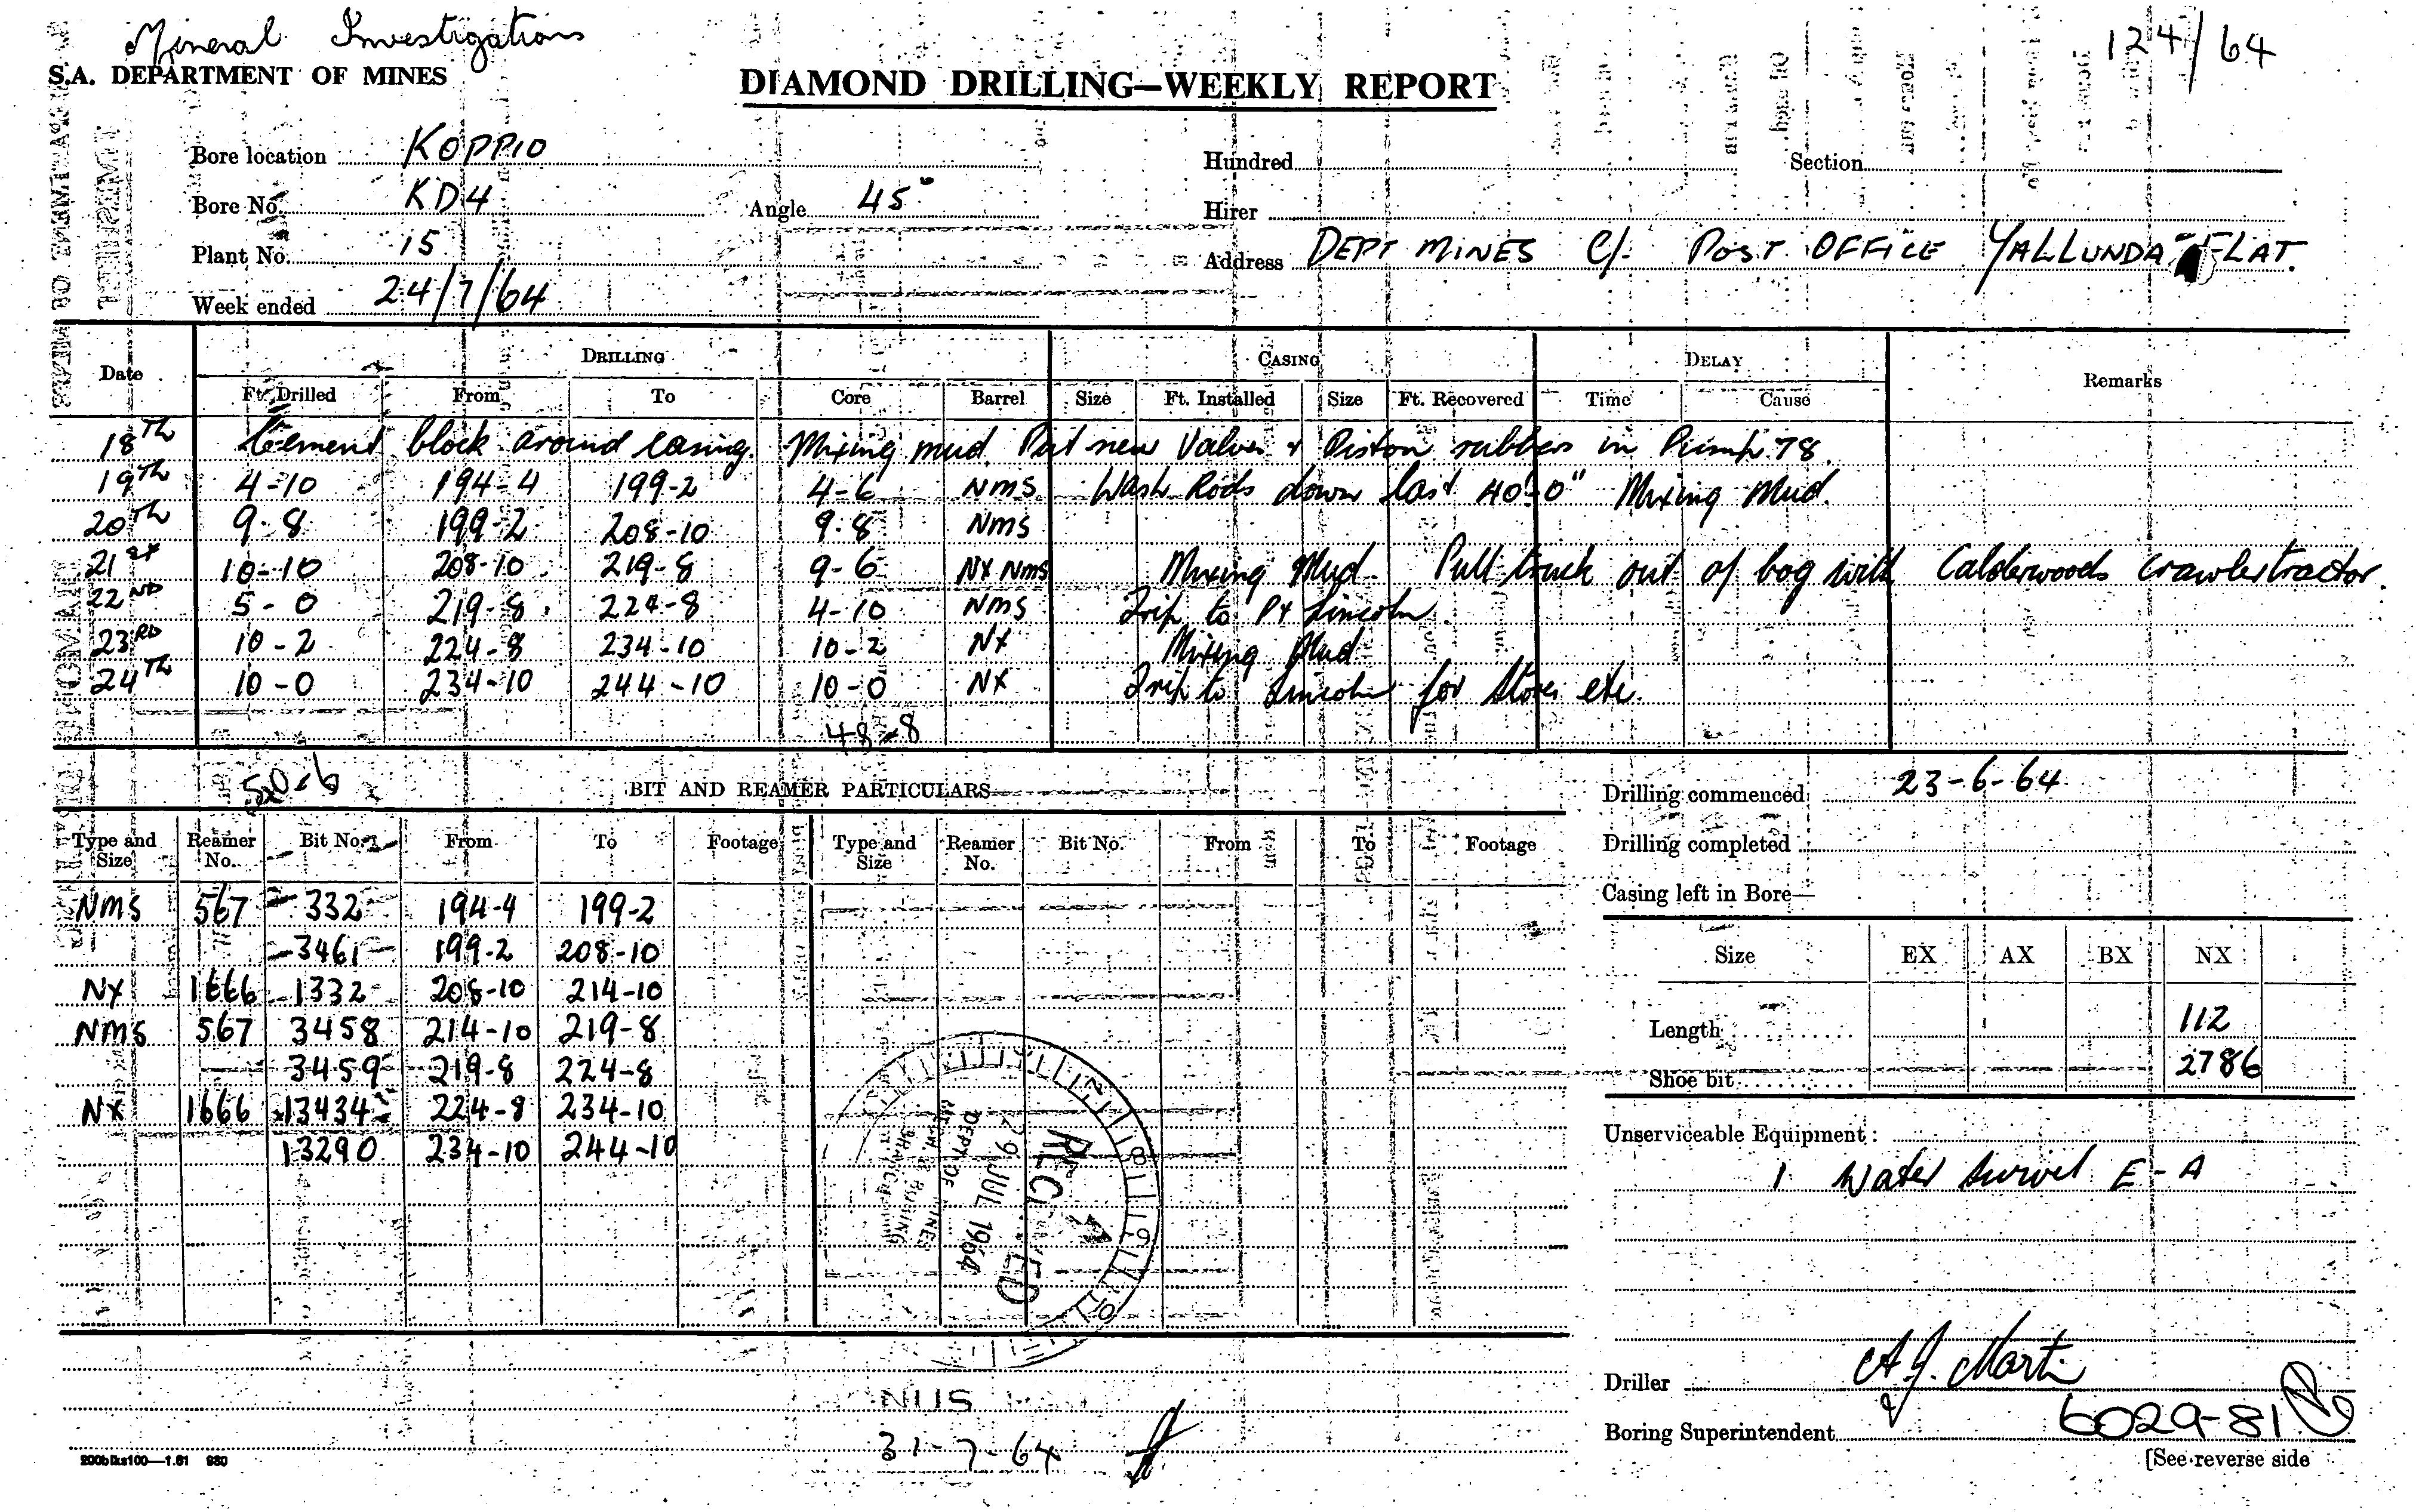 Mineral Investigations
124/64
S.A. DEPARTMENT OF MINES
DIAMOND DRILLING—WEEKLY REPORT
Bore location KOPPIO
Hundred Section
Bore No. KD4 Angle 45°
Hirer
Plant No. 15
Address DEPT MINES C/- POST OFFICE YALLUNDA FLAT.
Week ended 24/7/64
Date DRILLING CASING DELAY Remarks
Ft. Drilled From To Core Barrel Size Ft. Installed Size Ft. Recovered Time Cause
18TH Cement block around casing. Mixing mud. Put new Valves & Piston rubbers in Pump 78.
19TH 4-10 194-4 199-2 4-6 NMS Wash Rods down last 40'-0" Mixing Mud.
20TH 9-8 199-2 208-10 9-8 NMS
21ST 10-10 208-10 219-8 9-6 NX NMS Mixing Mud. Pull truck out of bog with Calderwoods crawler tractor.
22ND 5-0 219-8 224-8 4-10 NMS Trip to Pt Lincoln
23RD 10-2 224-8 234-10 10-2 NX Mixing Mud
24TH 10-0 234-10 244-10 10-0 NX Trip to Lincoln for Stores etc.
48-8
50-6
BIT AND REAMER PARTICULARS
Type and Size Reamer No. Bit No. From To Footage Type and Size Reamer No. Bit No. From To Footage
NMS 567 332 194-4 199-2
3461 199-2 208-10
NX 1666 1332 208-10 214-10
NMS 567 3458 214-10 219-8
3459 219-8 224-8
NX 1666 13434 224-8 234-10
13290 234-10 244-10
RECEIVED
29 JUL 1964
DEPT OF MINES
Drilling commenced 23-6-64
Drilling completed
Casing left in Bore—
Size EX AX BX NX
Length 112
Shoe bit 2786
Unserviceable Equipment:
1 Water Swivel E-A
Driller A.J. Martin
Boring Superintendent
6029-81
[See reverse side
31-7-64
200blks100—1.61 980